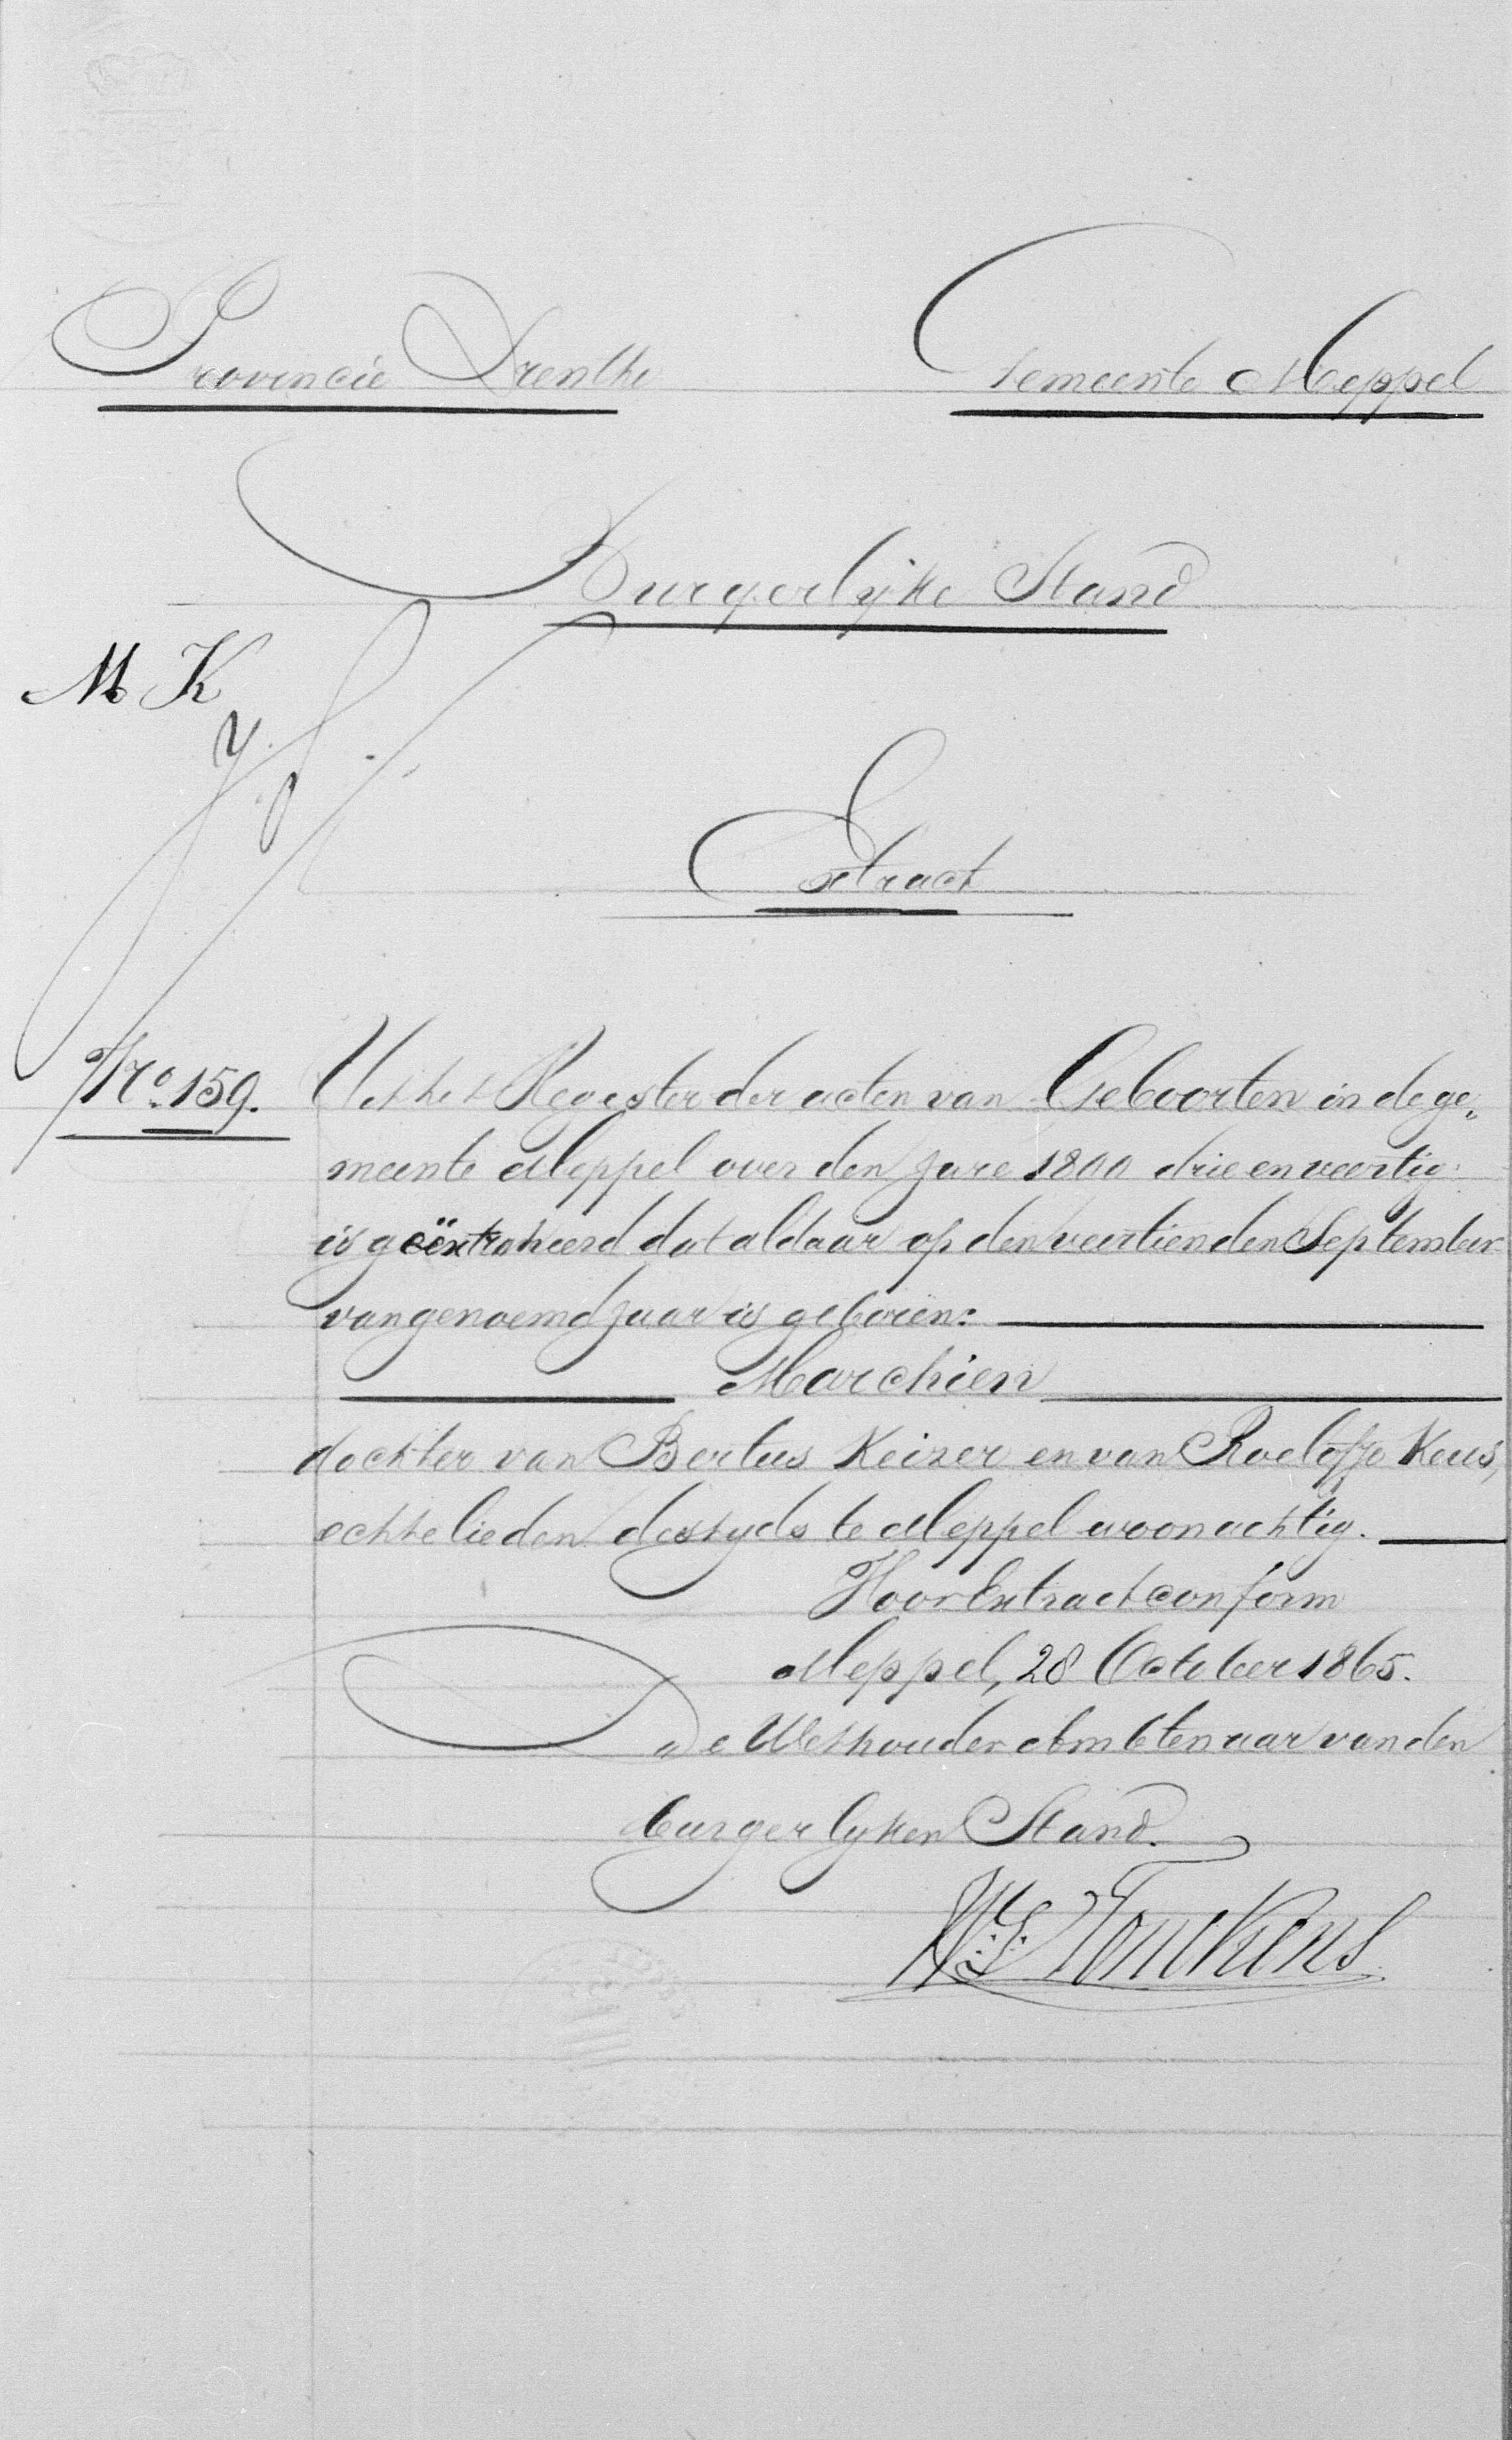 Provincie Drenthe
Gemeente Meppel
Burgerlijke Stand
M K
Extract
No. 159.
Uit het Register der acten van Geboorten in de ge„
meente Meppel over den jare 1800 drie en veertig
is geëxtraheerd dat aldaar op den veertienden September
van genoemd jaar is geboren:
Marchien
dochter van Bertus Keizer en van Roelofje Keus,
echtelieden destyds te Meppel woonachtig.
Voor Extract conform
Meppel, 28 October 1865.
De Wethouder Ambtenaar van den
burgerlyken Stand.
Tonckens